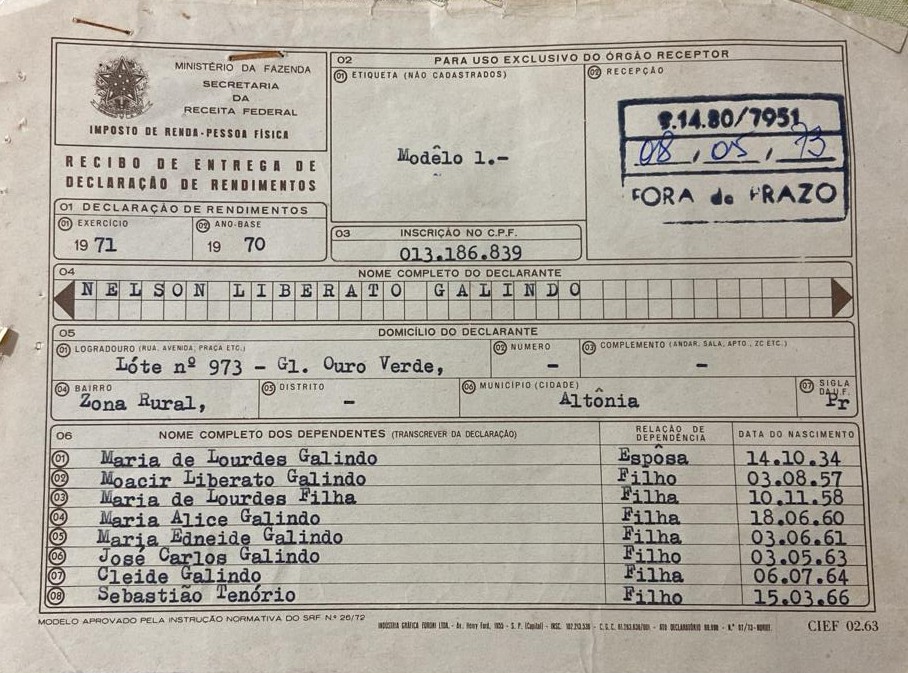 MINISTÉRIO DA FAZENDA
SECRETARIA
DA
RECEITA FEDERAL
IMPOSTO DE RENDA-PESSOA FÍSICA
RECIBO DE ENTREGA DE
DECLARAÇÃO DE RENDIMENTOS
02 PARA USO EXCLUSIVO DO ÓRGÃO RECEPTOR
01 ETIQUETA (NÃO CADASTRADOS)
Modêlo 1.-
02 RECEPÇÃO
9.14.80/7951
08, 05, 73
FORA do PRAZO
01 DECLARAÇÃO DE RENDIMENTOS
01 EXERCÍCIO 02 ANO-BASE
19 71 19 70
03 INSCRIÇÃO NO C.P.F.
013.186.839
04 NOME COMPLETO DO DECLARANTE
NELSON LIBERATO GALINDO
05 DOMICÍLIO DO DECLARANTE
01 LOGRADOURO (RUA, AVENIDA, PRAÇA ETC.) 02 NUMERO 03 COMPLEMENTO (ANDAR, SALA, APTO., ZC ETC.)
Lóte nº 973 - Gl. Ouro Verde, - -
04 BAIRRO 05 DISTRITO 06 MUNICÍPIO (CIDADE) 07 SIGLA DA U.F.
Zona Rural, - Altônia Pr
06 NOME COMPLETO DOS DEPENDENTES (TRANSCREVER DA DECLARAÇÃO) RELAÇÃO DE DEPENDÊNCIA DATA DO NASCIMENTO
01 Maria de Lourdes Galindo Espôsa 14.10.34
02 Moacir Liberato Galindo Filho 03.08.57
03 Maria de Lourdes Filha Filha 10.11.58
04 Maria Alice Galindo Filha 18.06.60
05 Maria Edneide Galindo Filha 03.06.61
06 José Carlos Galindo Filho 03.05.63
07 Cleide Galindo Filha 06.07.64
08 Sebastião Tenório Filho 15.03.66
MODELO APROVADO PELA INSTRUÇÃO NORMATIVA DO SRF N.º 26/72
INDÚSTRIA GRÁFICA FORONI LTDA. - Av. Henry Ford, - S. P. (Capital) - INSC.
CIEF 02.63